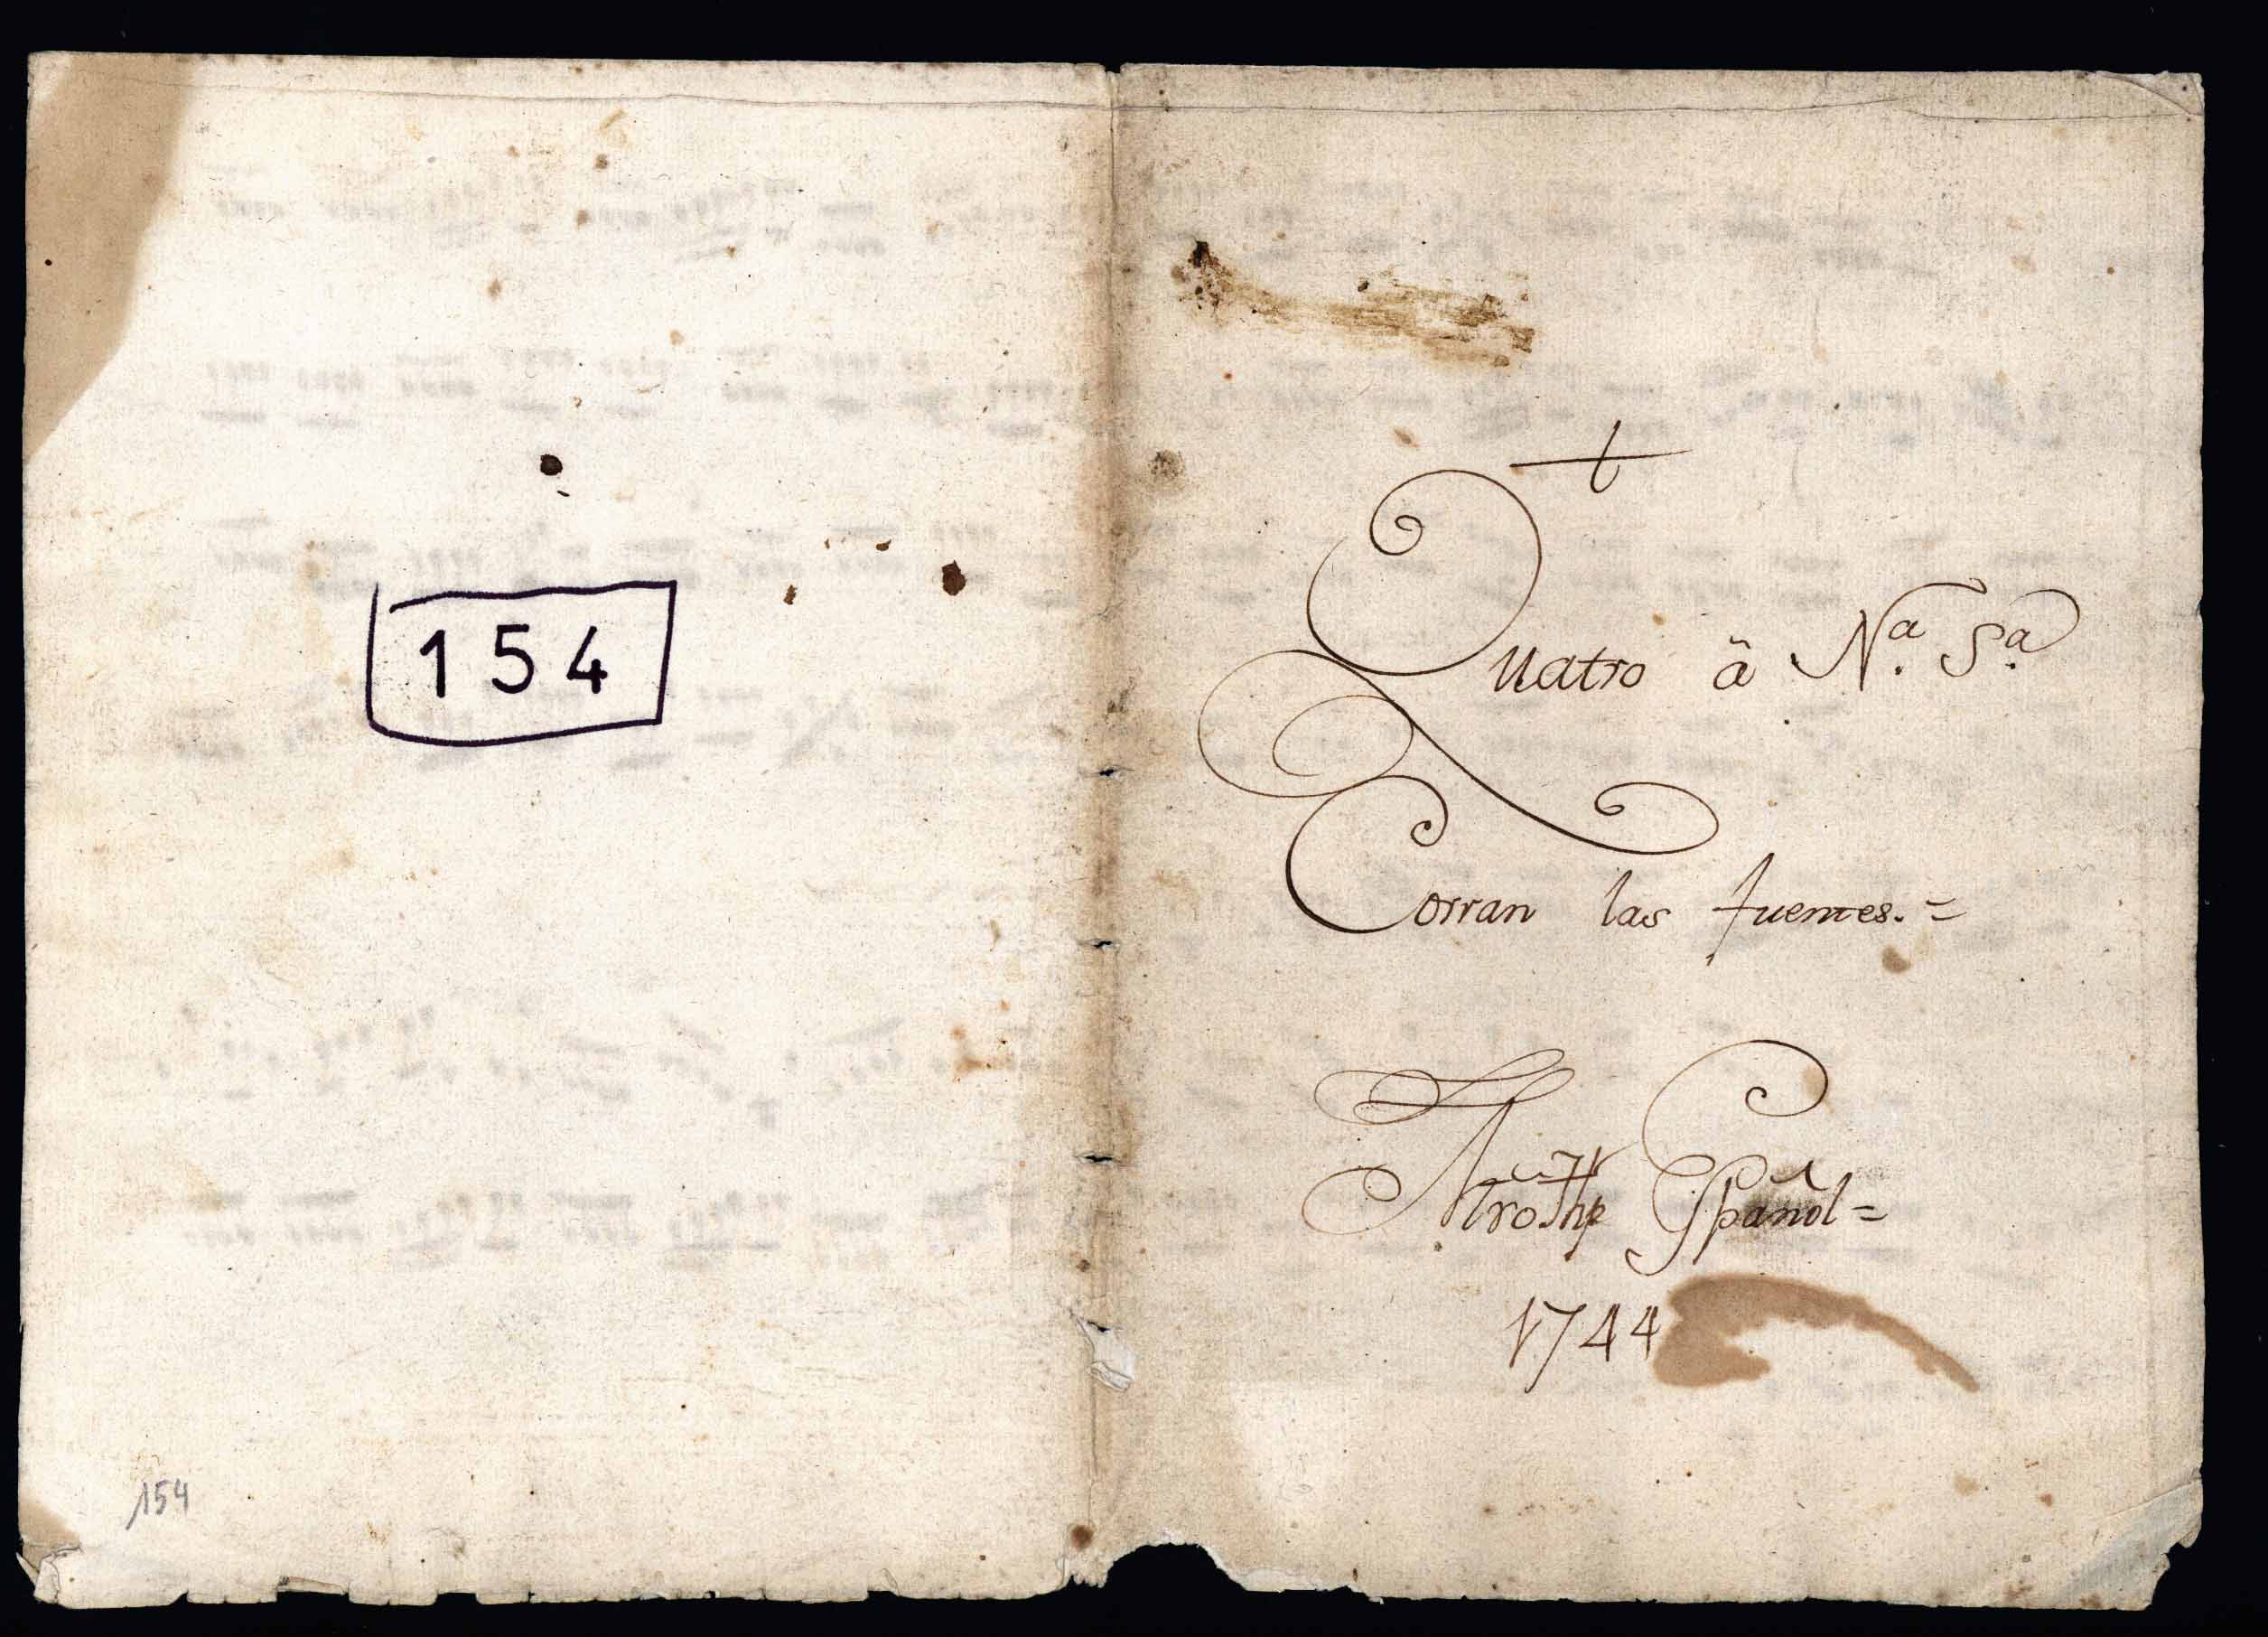 154
154
+
Quatro â Nª. Sª.
Corran las fuentes.=
Español=
1744